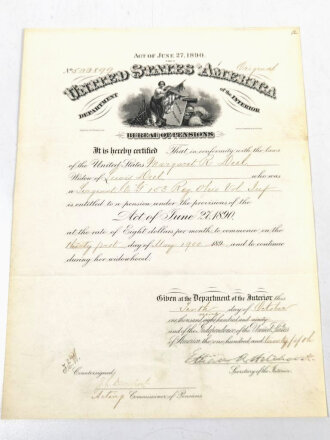 ACT OF JUNE 27, 1890.
No. Original
UNITED STATES OF AMERICA
DEPARTMENT of the INTERIOR
BUREAU OF PENSIONS
It is hereby certified That in conformity with the laws
of the United States Margaret R.
Widow of who was
a Co. G 153 Reg. Ohio Vol. Inf.
is entitled to a pension under the provisions of the
Act of June 27, 1890.
at the rate of Eight dollars per month to commence on the
thirty first day of May 1900 and to continue
during her widowhood.
Given at the Department of the Interior this
tenth day of October
one thousand eight hundred and ninety
and of the Independence of the United States
of America the one hundred and twenty fifth
Secretary of the Interior.
Countersigned,
Acting Commissioner of Pensions.